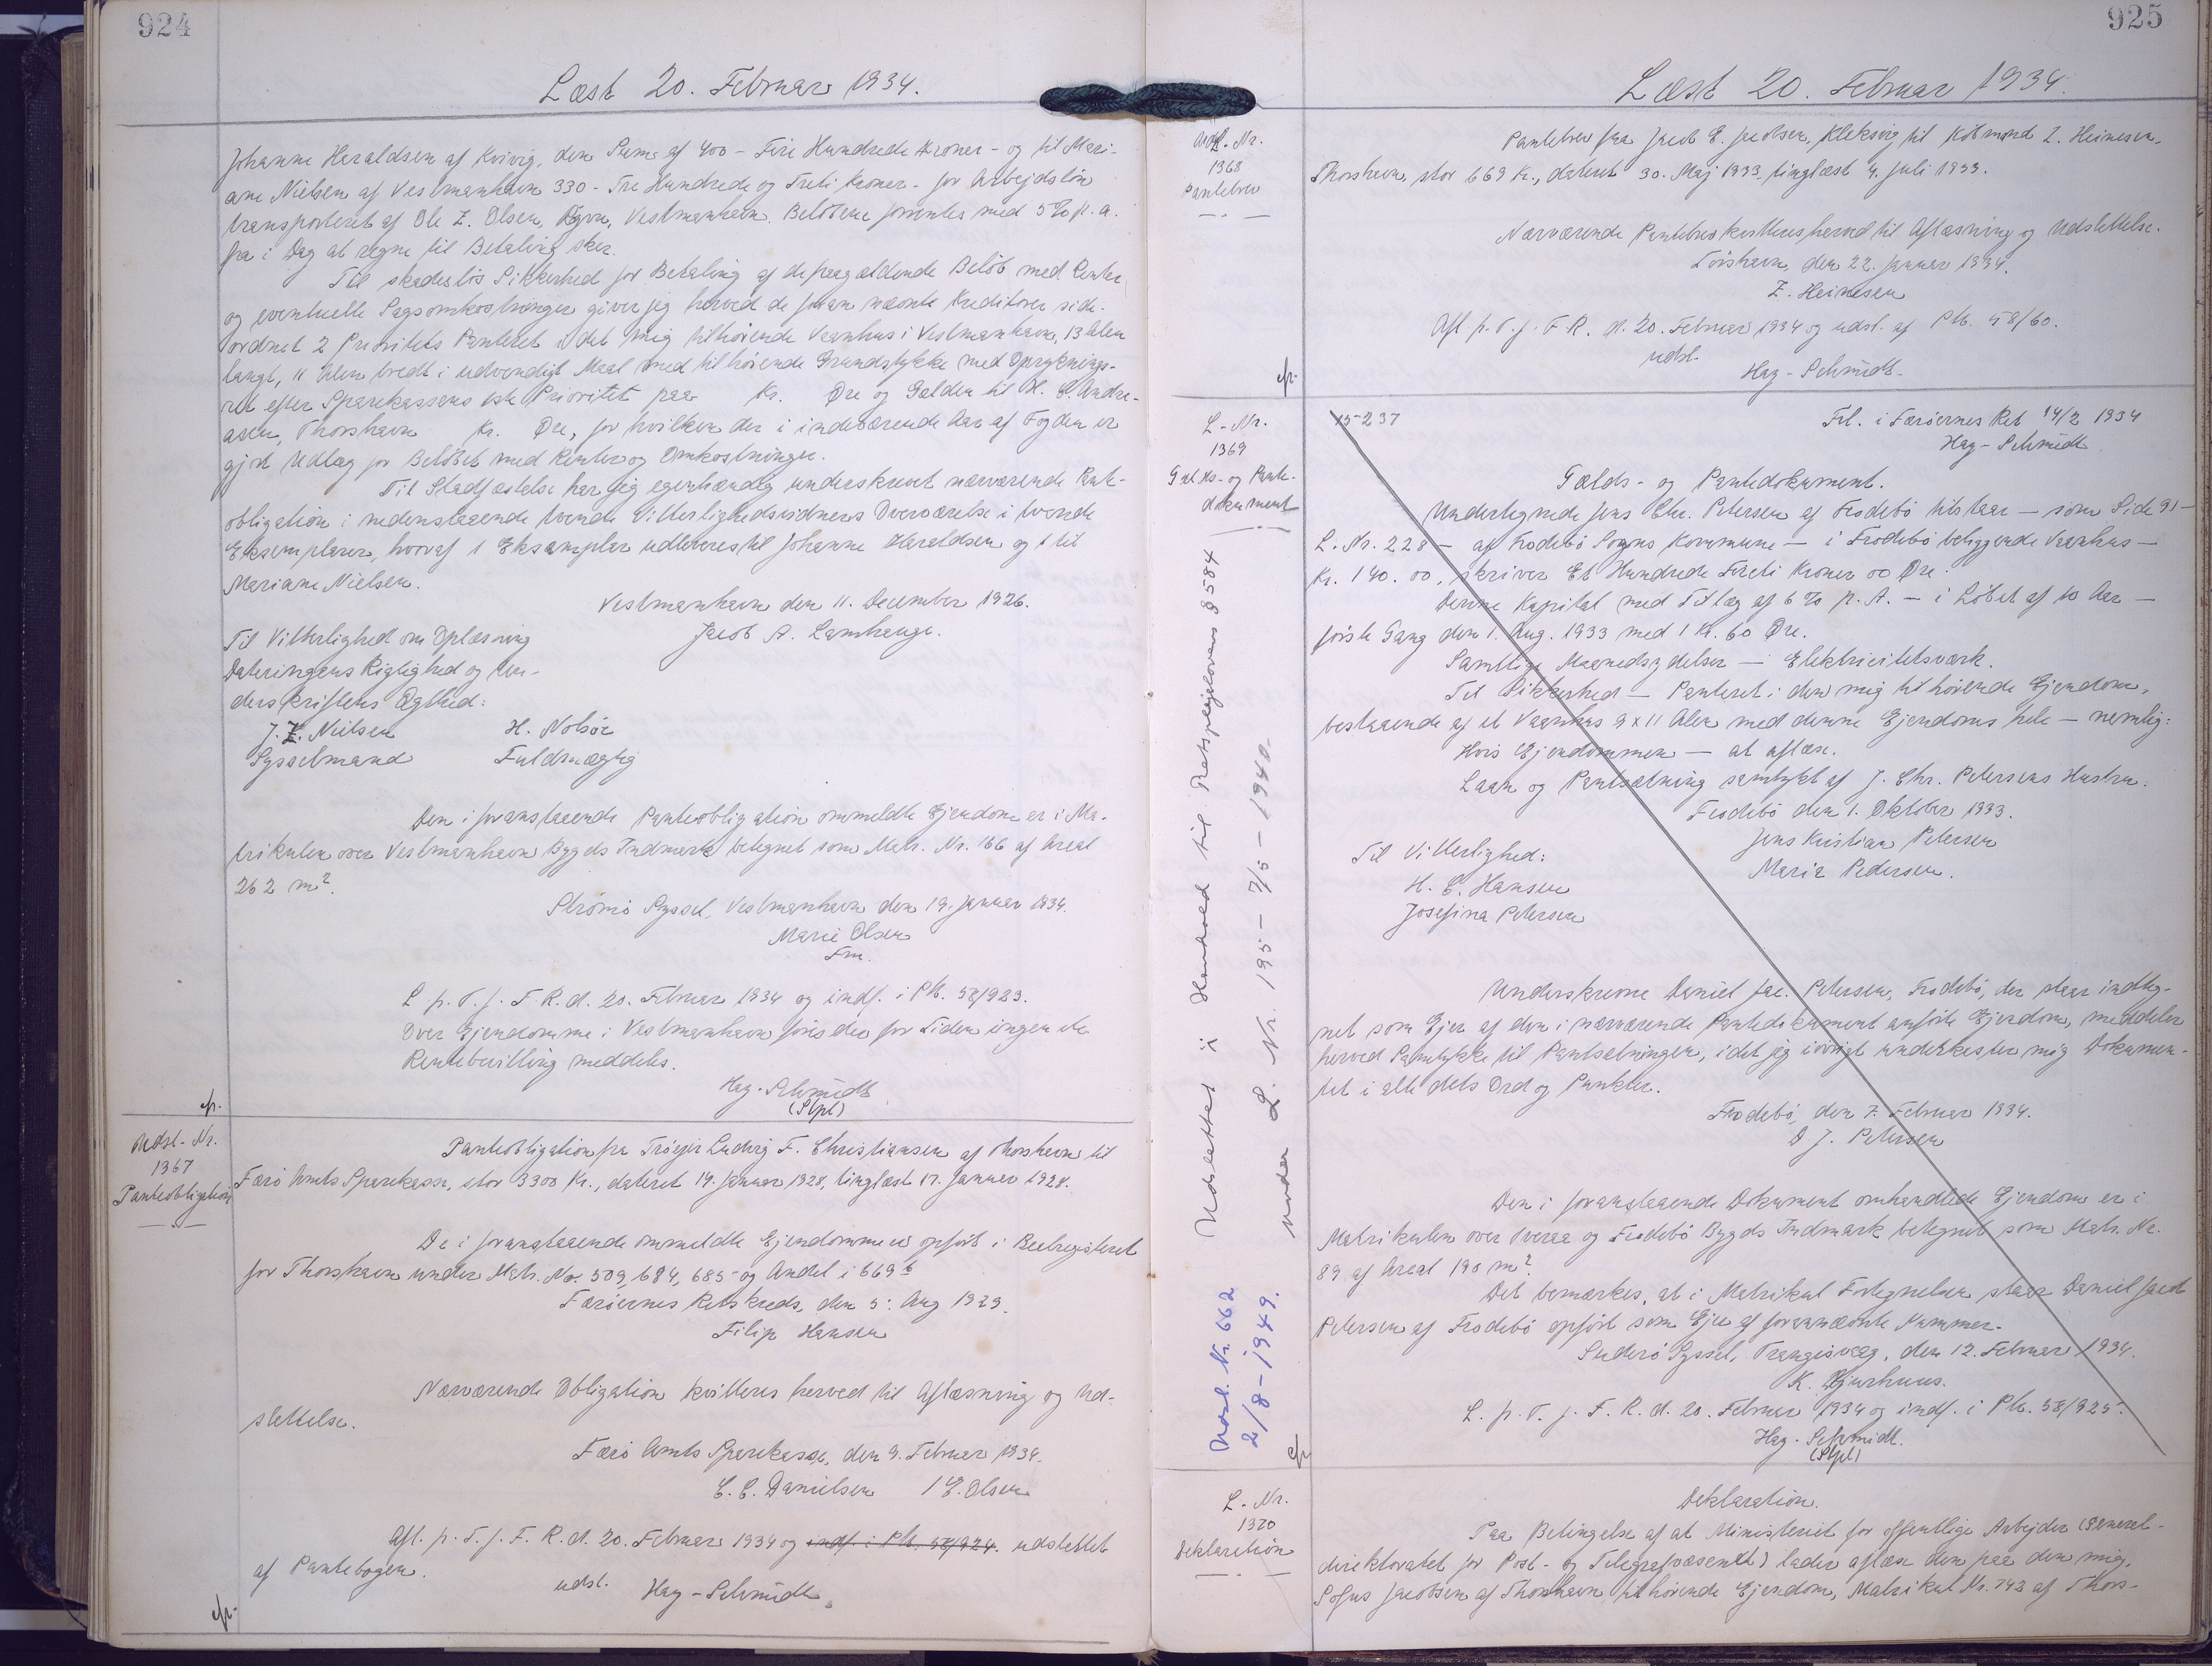 924
Læst 20. Februar 1934.
Johanne Haraldsen af Kvivig, den Sum af 400 - Fire Hundrede Kroner - og til Mari-
ane Nielsen af Vestmanhavn 330 - Tre Hundrede og Treti Kroner - for Arbejdsløn
transporteret af Ole Z. Olsen, Vestmanhavn. Beløbene forrentes med 5% p.a.
fra i Dag at regne til Betaling sker.
Til skadesløs Sikkerhed for Betaling af de paagældende Beløb med Renter
og eventuelle Sagsomkostninger giver jeg herved de foran nævnte Kreditorer side-
ordnet 2 Prioritets Panteret i det mig tilhørende Vaanhus i Vestmanhavn, 13 Alen
langt, 11 Alen bredt i udvendigt Maal med tilhørende Grundstykke med Opryknings-
ret efter Sparekassens 1ste Prioritet paa Kr. Øre og Gælden til H. C. Andre-
asen, Thorshavn Kr. Øre, for hvilken der i indeværende Aar af Fogden er
gjort Udlæg for Beløbet med Renter og Omkostninger.
Til Stadfæstelse har jeg egenhændig underskrevet nærværende Pant-
obligation i nedenstaaende tvende Vitterlighedsvidners Overværelse i tvende
Eksemplarer, hvoraf 1 Eksemplar udleveres til Johanne Haraldsen og 1 til
Mariane Nielsen.
Vestmanhavn den 11. December 1926.
Jacob A. Lamhauge.
Til Vitterlighed om Oplæsning
Dateringens Rigtighed og Un-
derskriftens Ægthed:
J. Z. Nielsen H. Nolsøe
Sysselmand Fuldmægtig
Den i foranstaaende Panteobligation ommeldte Ejendom er i Ma-
trikulen over Vestmanhavn Bygds Indmark betegnet som Matr. Nr. 166 af Areal
262 m².
Strømø Syssel, Vestmanhavn den 19. Januar 1934.
Marie Olsen
Fm.
L. p. T. f. F. R. d. 20. Februar 1934 og indf. i Pb. 58/923.
Over Ejendomme i Vestmanhavn føres der for Tiden ingen
Rentebevilling meddeles.
Hag-Schmidt
(Stpl)
cfr.
Udsl-Nr.
1367
Panteobligation
Panteobligation fra Trøjer Ludvig F. Christiansen af Thorshavn til
Færø Amts Sparekasse, stor 3300 Kr., dateret 14. Januar 1928, tinglæst 17. Januar 1928.
De i foranstaaende ommeldte Ejendomme er opført i Realregisteret
for Thorshavn under Matr. No. 509, 684, 685 og Andel i 669 b
Færøernes Retskreds, den 5. Aug 1929.
Filip Hansen
Nærværende Obligation kvitteres herved til Aflæsning og Ud-
slettelse.
Færø Amts Sparekasse, den 9. Februar 1934.
C. C. Danielsen / E. Olsen
Afl. p. T. f. F. R. d. 20. Februar 1934 og indf. i Pb. 58/924. udslettet
af Pantebogen.
udsl. Hag-Schmidt.
cfr.
925
Læst 20. Februar 1934.
Udsl.-Nr.
1368
Pantebrev
Pantebrev fra Jacob E. Jacobsen, Kleksvig til Købmand Z. Heinesen,
Thorshavn, stor 669 Kr., dateret 30. Maj 1933, tinglæst 4. Juli 1933.
Nærværende Pantebrev kvitteres herved til Aflæsning og Udslettelse.
Torshavn, den 22. Januar 1934.
Z. Heinesen
Afl p. T. f. F. R. d. 20. Februar 1934 og udsl. af Pb. 58/60.
udsl.
Hag-Schmidt.
cfr.
L.-Nr.
1369
Gælds- og Pante-
dokument
15-237
Frl. i Færøernes Ret 14/2 1934
Hag-Schmidt.
Gælds- og Pantedokument.
Undertegnede Jens Chr. Petersen af Frodebø tilstaar - som Side 91 -
L. Nr. 228 - af Frodebø Sogns Kommune - i Frodebø beliggende Vaanhus -
Kr. 140.00, skriver Et Hundrede Fireti Kroner 00 Øre.
Denne Kapital med Tillæg af 6% p. A. - i Løbet af 10 Aar -
første Gang den 1. Aug. 1933 med 1 Kr. 60 Øre.
Samtlige Maanedsydelser - Elektricitetsværk.
Til Sikkerhed - Panteret i den mig tilhørende Ejendom,
bestaaende af et Vaanhus 9 x 11 Alen med denne Ejendoms hele - nemlig:
Hvis Ejendommen - at aflæse.
Laan og Pantsætning samtykt af J. Chr. Petersens Hustru.
Frodebø den 1. Oktober 1933.
Jens Kristian Petersen
Maria Pedersen.
Til Vitterlighed:
H. C. Hansen
Josefina Petersen
Underskrevne Daniel Jac. Petersen, Frodebø, der staar indteg-
net som Ejer af den i nærværende Pantedokument anførte Ejendom, meddeler
herved Samtykke til Pantsætningen, idet jeg iøvrigt underkaster mig Dokumen-
tet i alle dets Ord og Punkter.
Frodebø, den 7. Februar 1934.
D J. Petersen
Den i foranstaaende Dokument omhandlede Ejendom er i
Matrikulen over Tveraa og Frodebø Bygds Indmark betegnet som Matr. Nr.
89 af Areal 190 m².
Det bemærkes, at i Matrikul Fortegnelsen staar Daniel Jacob
Petersen af Frodebø opført som Ejer af forannævnte Nummer.
Suderø Syssel, Trangisvaag, den 12. Februar 1934.
K. Djurhuus.
L. p. T. f. F. R. d. 20. Februar 1934 og indf. i Pb. 58/925.
Hag-Schmidt.
(Stpl)
Udslettet i Henhold til Retsplejelovens § 584
under L. Nr. 195 - 7/5 - 1940.
Udsl. Nr. 662
2/8-1949.
cfr
L.-Nr.
1370
Deklaration
Deklaration.
Paa Betingelse af at Ministeriet for offentlige Arbejder (General-
direktoratet for Post- og Telegrafvæsenet) lader aflæse den paa den mig,
Sofus Jacobsen af Thorshavn tilhørende Ejendom, Matrikul Nr. 742 af Thors-